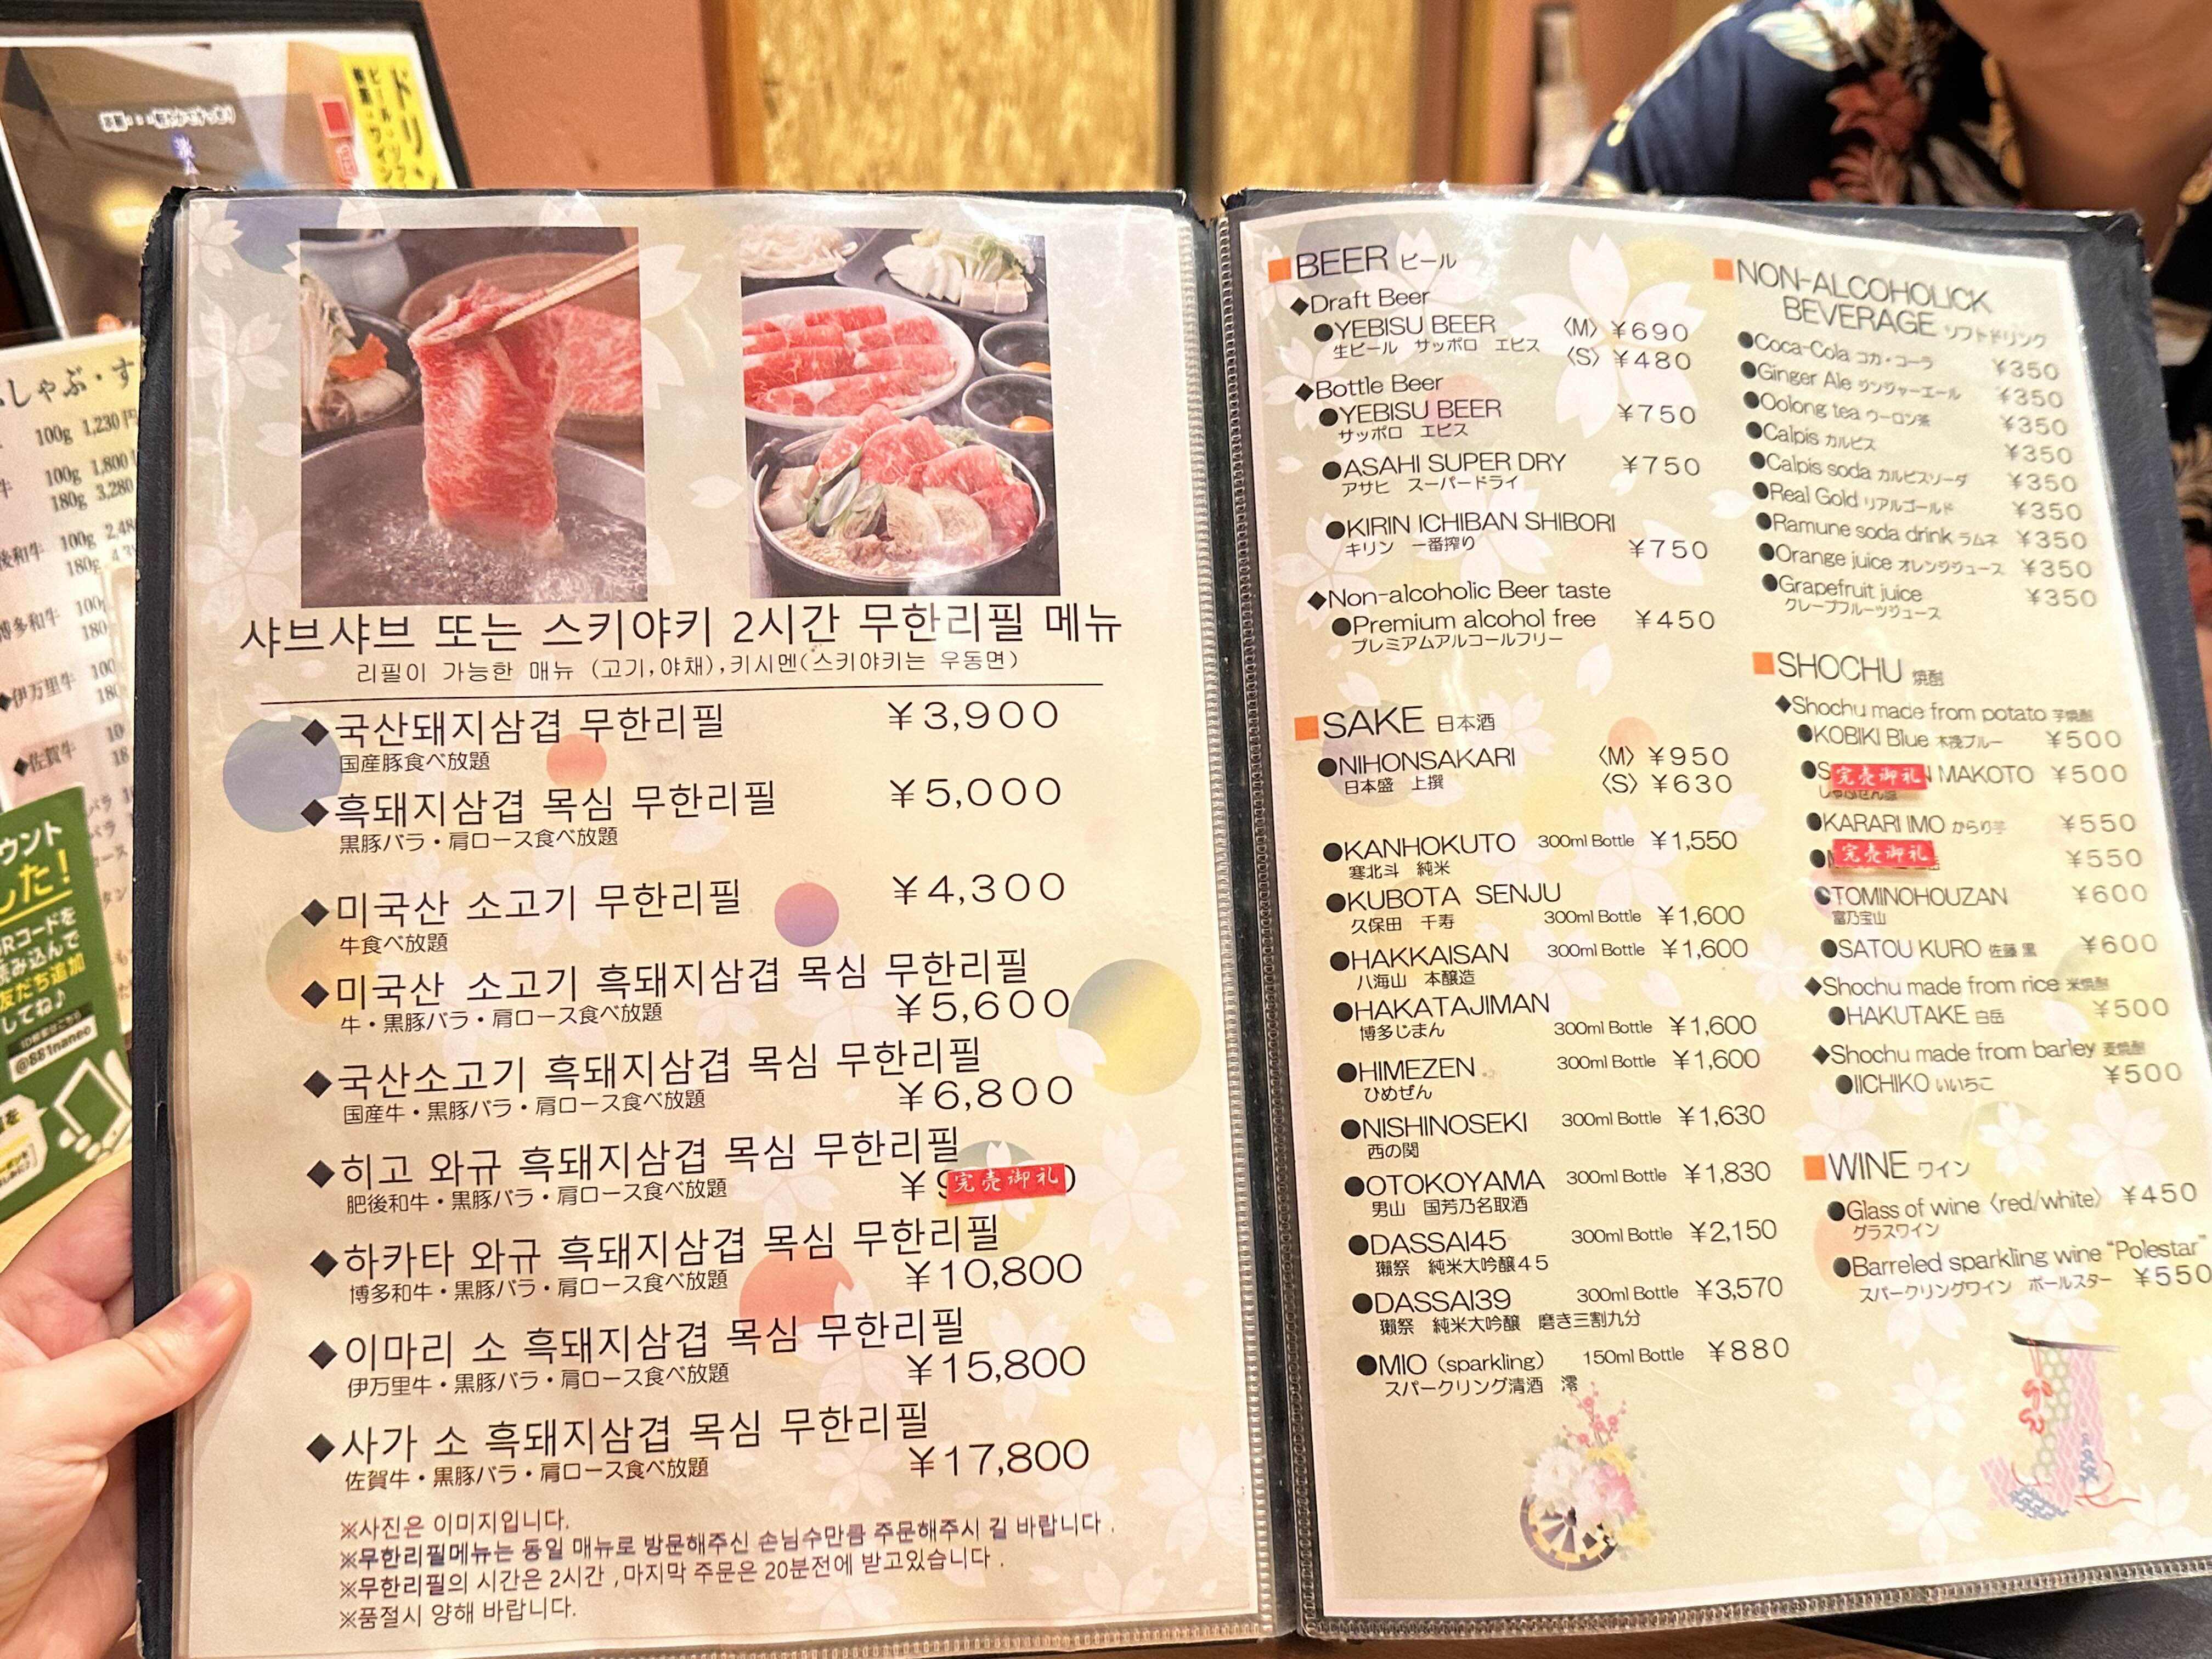 ドリ
しゃぶ・す
100g 1,230円
100g 1,800
180g 3,280
後和牛 100g
180g
博多和牛 100g
180
◆伊万里牛 100
◆佐賀牛
ウント
した!
Rコードを
読み込んで
友だち追加
してね♪
@881naneo
샤브샤브 또는 스키야키 2시간 무한리필 메뉴
리필이 가능한 매뉴 (고기,야채),키시멘(스키야키는 우동면)
◆국산돼지삼겹 무한리필 ¥3,900
国産豚食べ放題
◆흑돼지삼겹 목심 무한리필 ¥5,000
黒豚バラ・肩ロース食べ放題
◆미국산 소고기 무한리필 ¥4,300
牛食べ放題
◆미국산 소고기 흑돼지삼겹 목심 무한리필
牛・黒豚バラ・肩ロース食べ放題 ¥5,600
◆국산소고기 흑돼지삼겹 목심 무한리필
国産牛・黒豚バラ・肩ロース食べ放題 ¥6,800
◆히고 와규 흑돼지삼겹 목심 무한리필
肥後和牛・黒豚バラ・肩ロース食べ放題 ¥9 完売御礼
◆하카타 와규 흑돼지삼겹 목심 무한리필
博多和牛・黒豚バラ・肩ロース食べ放題 ¥10,800
◆이마리 소 흑돼지삼겹 목심 무한리필
伊万里牛・黒豚バラ・肩ロース食べ放題 ¥15,800
◆사가 소 흑돼지삼겹 목심 무한리필
佐賀牛・黒豚バラ・肩ロース食べ放題 ¥17,800
※사진은 이미지입니다.
※무한리필메뉴는 동일 매뉴로 방문해주신 손님수만큼 주문해주시 길 바랍니다 .
※무한리필의 시간은 2시간 ,마지막 주문은 20분전에 받고있습니다 .
※품절시 양해 바랍니다.
■BEER ビール
◆Draft Beer
●YEBISU BEER 〈M〉¥690
生ビール サッポロ エビス 〈S〉¥480
◆Bottle Beer
●YEBISU BEER ¥750
サッポロ エビス
●ASAHI SUPER DRY ¥750
アサヒ スーパードライ
●KIRIN ICHIBAN SHIBORI
キリン 一番搾り ¥750
◆Non-alcoholic Beer taste
●Premium alcohol free ¥450
プレミアムアルコールフリー
■SAKE 日本酒
●NIHONSAKARI 〈M〉¥950
日本盛 上撰 〈S〉¥630
●KANHOKUTO 300ml Bottle ¥1,550
寒北斗 純米
●KUBOTA SENJU
久保田 千寿 300ml Bottle ¥1,600
●HAKKAISAN 300ml Bottle ¥1,600
八海山 本醸造
●HAKATAJIMAN
博多じまん 300ml Bottle ¥1,600
●HIMEZEN 300ml Bottle ¥1,600
ひめぜん
●NISHINOSEKI 300ml Bottle ¥1,630
西の関
●OTOKOYAMA 300ml Bottle ¥1,830
男山 国芳乃名取酒
●DASSAI45 300ml Bottle ¥2,150
獺祭 純米大吟醸45
●DASSAI39 300ml Bottle ¥3,570
獺祭 純米大吟醸 磨き三割九分
●MIO (sparkling) 150ml Bottle ¥880
スパークリング清酒 澪
■NON-ALCOHOLICK
BEVERAGE ソフトドリンク
●Coca-Cola コカ・コーラ ¥350
●Ginger Ale ジンジャーエール ¥350
●Oolong tea ウーロン茶 ¥350
●Calpis カルピス ¥350
●Calpis soda カルピスソーダ ¥350
●Real Gold リアルゴールド ¥350
●Ramune soda drink ラムネ ¥350
●Orange juice オレンジジュース ¥350
●Grapefruit juice ¥350
グレープフルーツジュース
■SHOCHU 焼酎
◆Shochu made from potato 芋焼酎
●KOBIKI Blue 木挽ブルー ¥500
●S 完売御礼 N MAKOTO ¥500
●KARARI IMO からり芋 ¥550
● 完売御礼 ¥550
●TOMINOHOUZAN ¥600
富乃宝山
●SATOU KURO 佐藤 黒 ¥600
◆Shochu made from rice 米焼酎
●HAKUTAKE 白岳 ¥500
◆Shochu made from barley 麦焼酎
●IICHIKO いいちこ ¥500
■WINE ワイン
●Glass of wine〈red/white〉 ¥450
グラスワイン
●Barreled sparkling wine "Polestar"
スパークリングワイン ポールスター ¥550